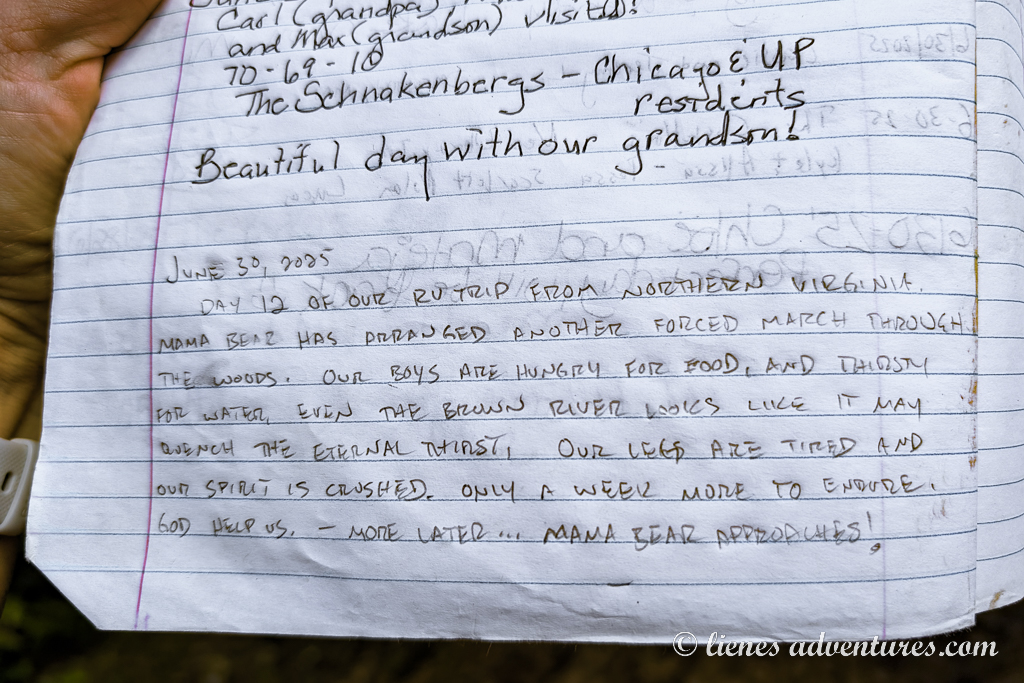 Carl (grandpa)
and Max (grandson) visited!
70-69-10
The Schnakenbergs - Chicago & UP
residents
Beautiful day with our grandson!
JUNE 30, 2025
DAY 12 OF OUR RV TRIP FROM NORTHERN VIRGINIA.
MAMA BEAR HAS ARRANGED ANOTHER FORCED MARCH THROUGH
THE WOODS. OUR BOYS ARE HUNGRY FOR FOOD, AND THIRSTY
FOR WATER, EVEN THE BROWN RIVER LOOKS LIKE IT MAY
QUENCH THE ETERNAL THIRST, OUR LEGS ARE TIRED AND
OUR SPIRIT IS CRUSHED. ONLY A WEEK MORE TO ENDURE.
GOD HELP US. - MORE LATER... MAMA BEAR APPROACHES!
© lienes adventures.com